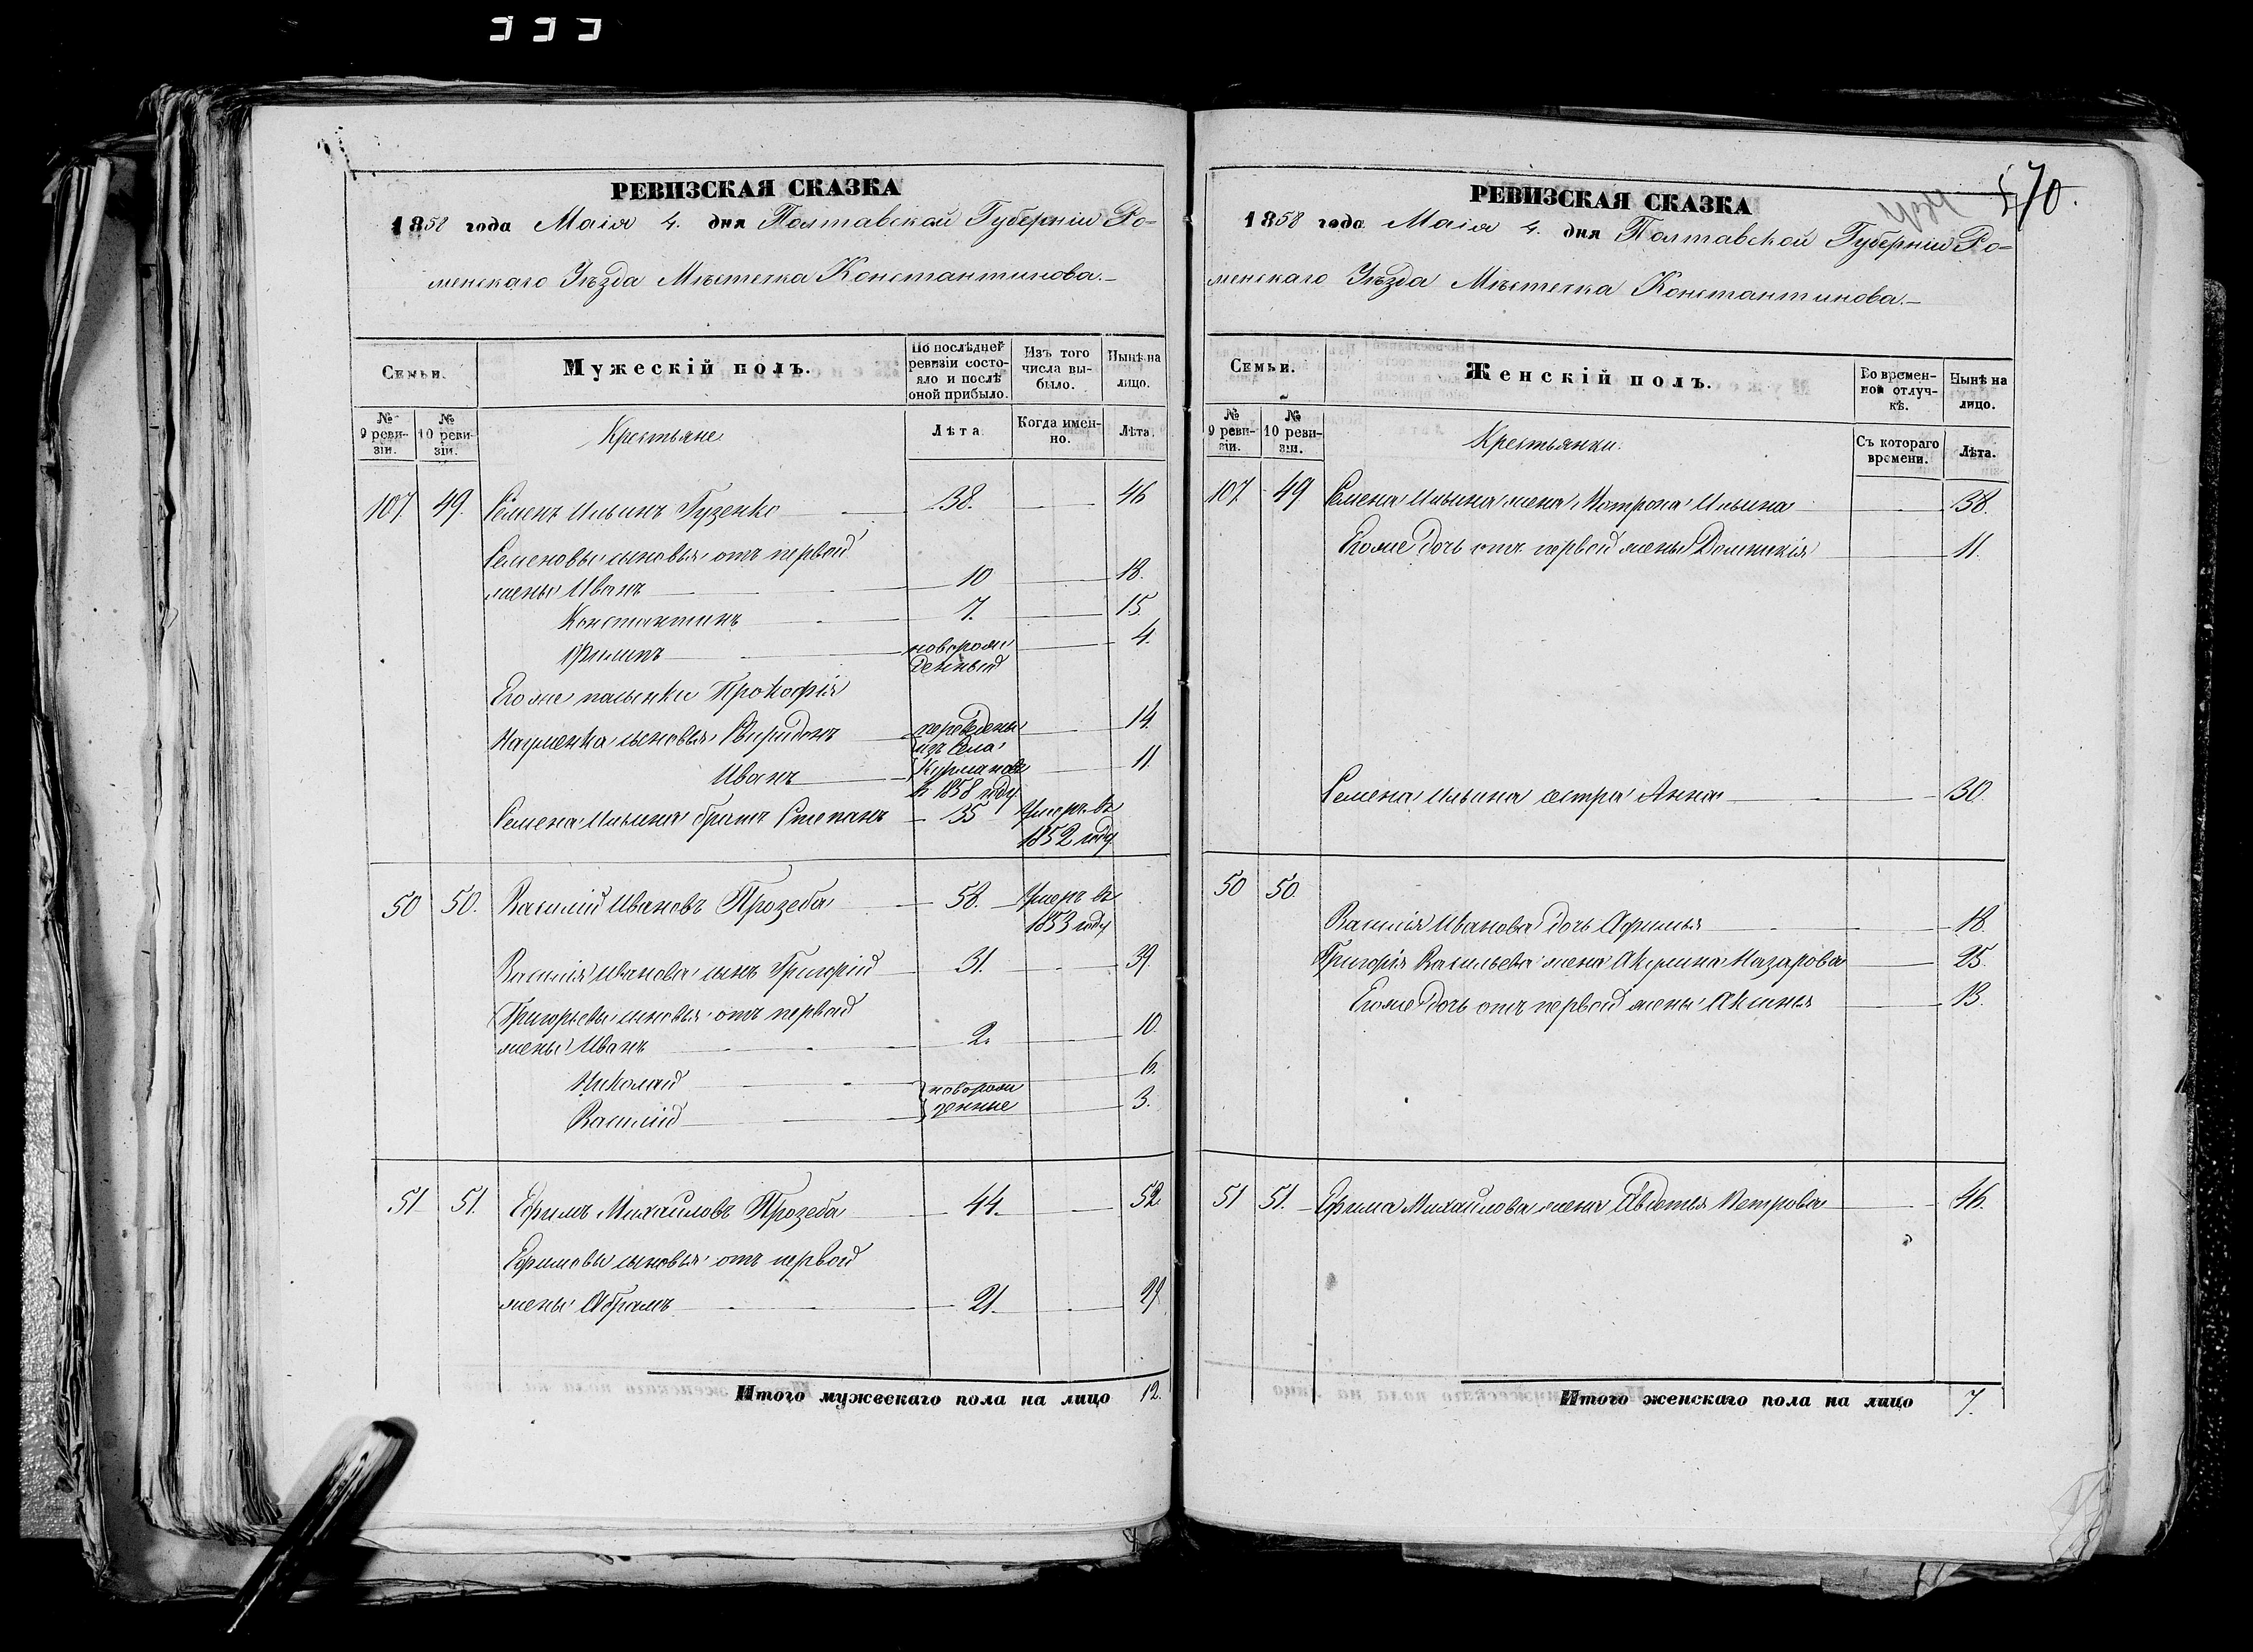 РЕВИЗСКАЯ СКАЗКА
1858 года Маія 4. дня Полтавской Губерніи Ро-
менскаго Уѣзда Мѣстечка Константинова.
Семьи.
Мужескій полъ.
По послѣдней ревизіи состо-
яло и послѣ оной прибыло.
Изъ того числа вы-
было.
Нынѣ на лицо.
№ 9 реви-
зіи.
№ 10 реви-
зіи.
Крестьяне
Лѣта
Когда имен-
но.
Лѣта.
107. 49. Семенъ Ильинъ Гузенко 38. 46
Семеновы сыновья отъ первой
жены Иванъ 10 18.
Константинъ 7. 15.
Филипъ новорож-
денный 4.
Егоже
Прокофія
Науменка сыновья Свиридонъ 14.
Иванъ 11
переведены
изъ села
Курманов
въ 1858 году
Семена Ильина братъ Степанъ 35 Умеръ въ
1852 году
50 50. Василій Ивановъ Прозеба 58. Умеръ въ
1853 году
Василія Иванова сынъ Григорій 31. 39
Григорьевы сыновья отъ первой
жены Иванъ 2. 10.
Николай 6.
Василій 3.
новорож
денные
51 51. Ефимъ Михайловъ Прозеба 44. 52
Ефимовы сыновья отъ первой
жены Абрамъ 21. 29
Итого мужескаго пола на лицо 12.
570.
РЕВИЗСКАЯ СКАЗКА
1858 года Маія 4. дня Полтавской Губерніи Ро-
менскаго Уѣзда Мѣстечка Константинова.
Семьи.
Женскій полъ.
Во времен-
ной отлуч-
кѣ.
Нынѣ на лицо.
№ 9 реви-
зіи.
№ 10 реви-
зіи.
Крестьянки.
Съ котораго времени.
Лѣта.
107 49 Семена Ильина жена Мотрона Ильина 38.
Егоже дочь отъ первой жены Домникія 11.
Семена Ильина сестра Анна 30.
50 50.
Василія Иванова дочь Афимья 18.
Григорія Васильева жена Акулина Назарова 25.
Егоже дочь отъ первой жены Аксинья 13.
51 51. Ефима Михайлова жена Авдотья Петрова 46.
Итого женскаго пола на лицо 7.